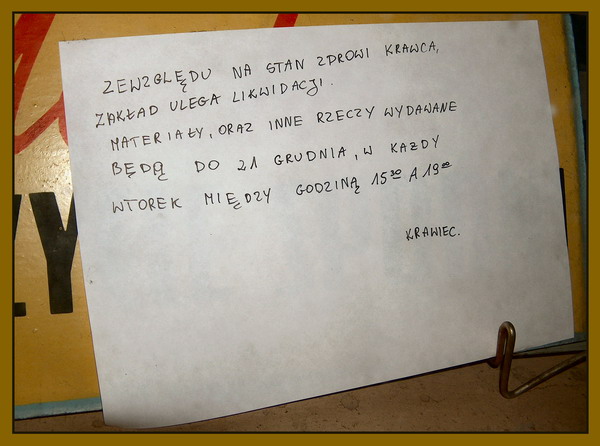 ZEWZGLĘDU NA STAN ZDROWI KRAWCA,
ZAKŁAD ULEGA LIKWIDACJI.
MATERIAŁY, ORAZ INNE RZECZY WYDAWANE
BĘDĄ DO 21 GRUDNIA, W KAŻDY
WTOREK MIĘDZY GODZINĄ 15³⁰ A 19⁰⁰
KRAWIEC.